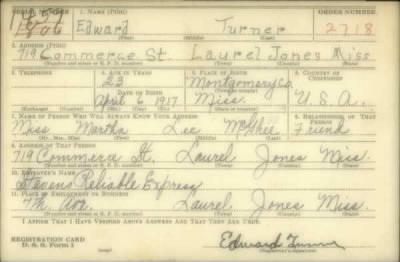 SERIAL NUMBER 1. NAME (Print) ORDER NUMBER
1806 Edward Turner 2718
(First) (Middle) (Last)
2. ADDRESS (Print)
719 Commerce St. Laurel Jones Miss
(Number and street or R. F. D. number) (Town) (County) (State)
3. TELEPHONE 4. AGE IN YEARS 5. PLACE OF BIRTH 6. COUNTRY OF CITIZENSHIP
23 Montgomery Co.
DATE OF BIRTH
April 6 1917 Miss. U. S. A.
(Exchange) (Number) (Mo.) (Day) (Yr.) (State or country)
7. NAME OF PERSON WHO WILL ALWAYS KNOW YOUR ADDRESS 8. RELATIONSHIP OF THAT PERSON
Miss Martha Lee McGhee Friend
(Mr., Mrs., Miss) (First) (Middle) (Last)
9. ADDRESS OF THAT PERSON
719 Commerce St. Laurel Jones Miss.
(Number and street or R. F. D. number) (Town) (County) (State)
10. EMPLOYER'S NAME
Stevens Reliable Express
11. PLACE OF EMPLOYMENT OR BUSINESS
7th Ave. Laurel Jones Miss.
(Number and street or R. F. D. number) (Town) (County) (State)
I AFFIRM THAT I HAVE VERIFIED ABOVE ANSWERS AND THAT THEY ARE TRUE.
REGISTRATION CARD
D. S. S. Form 1 Edward Turner
(Registrant's signature)